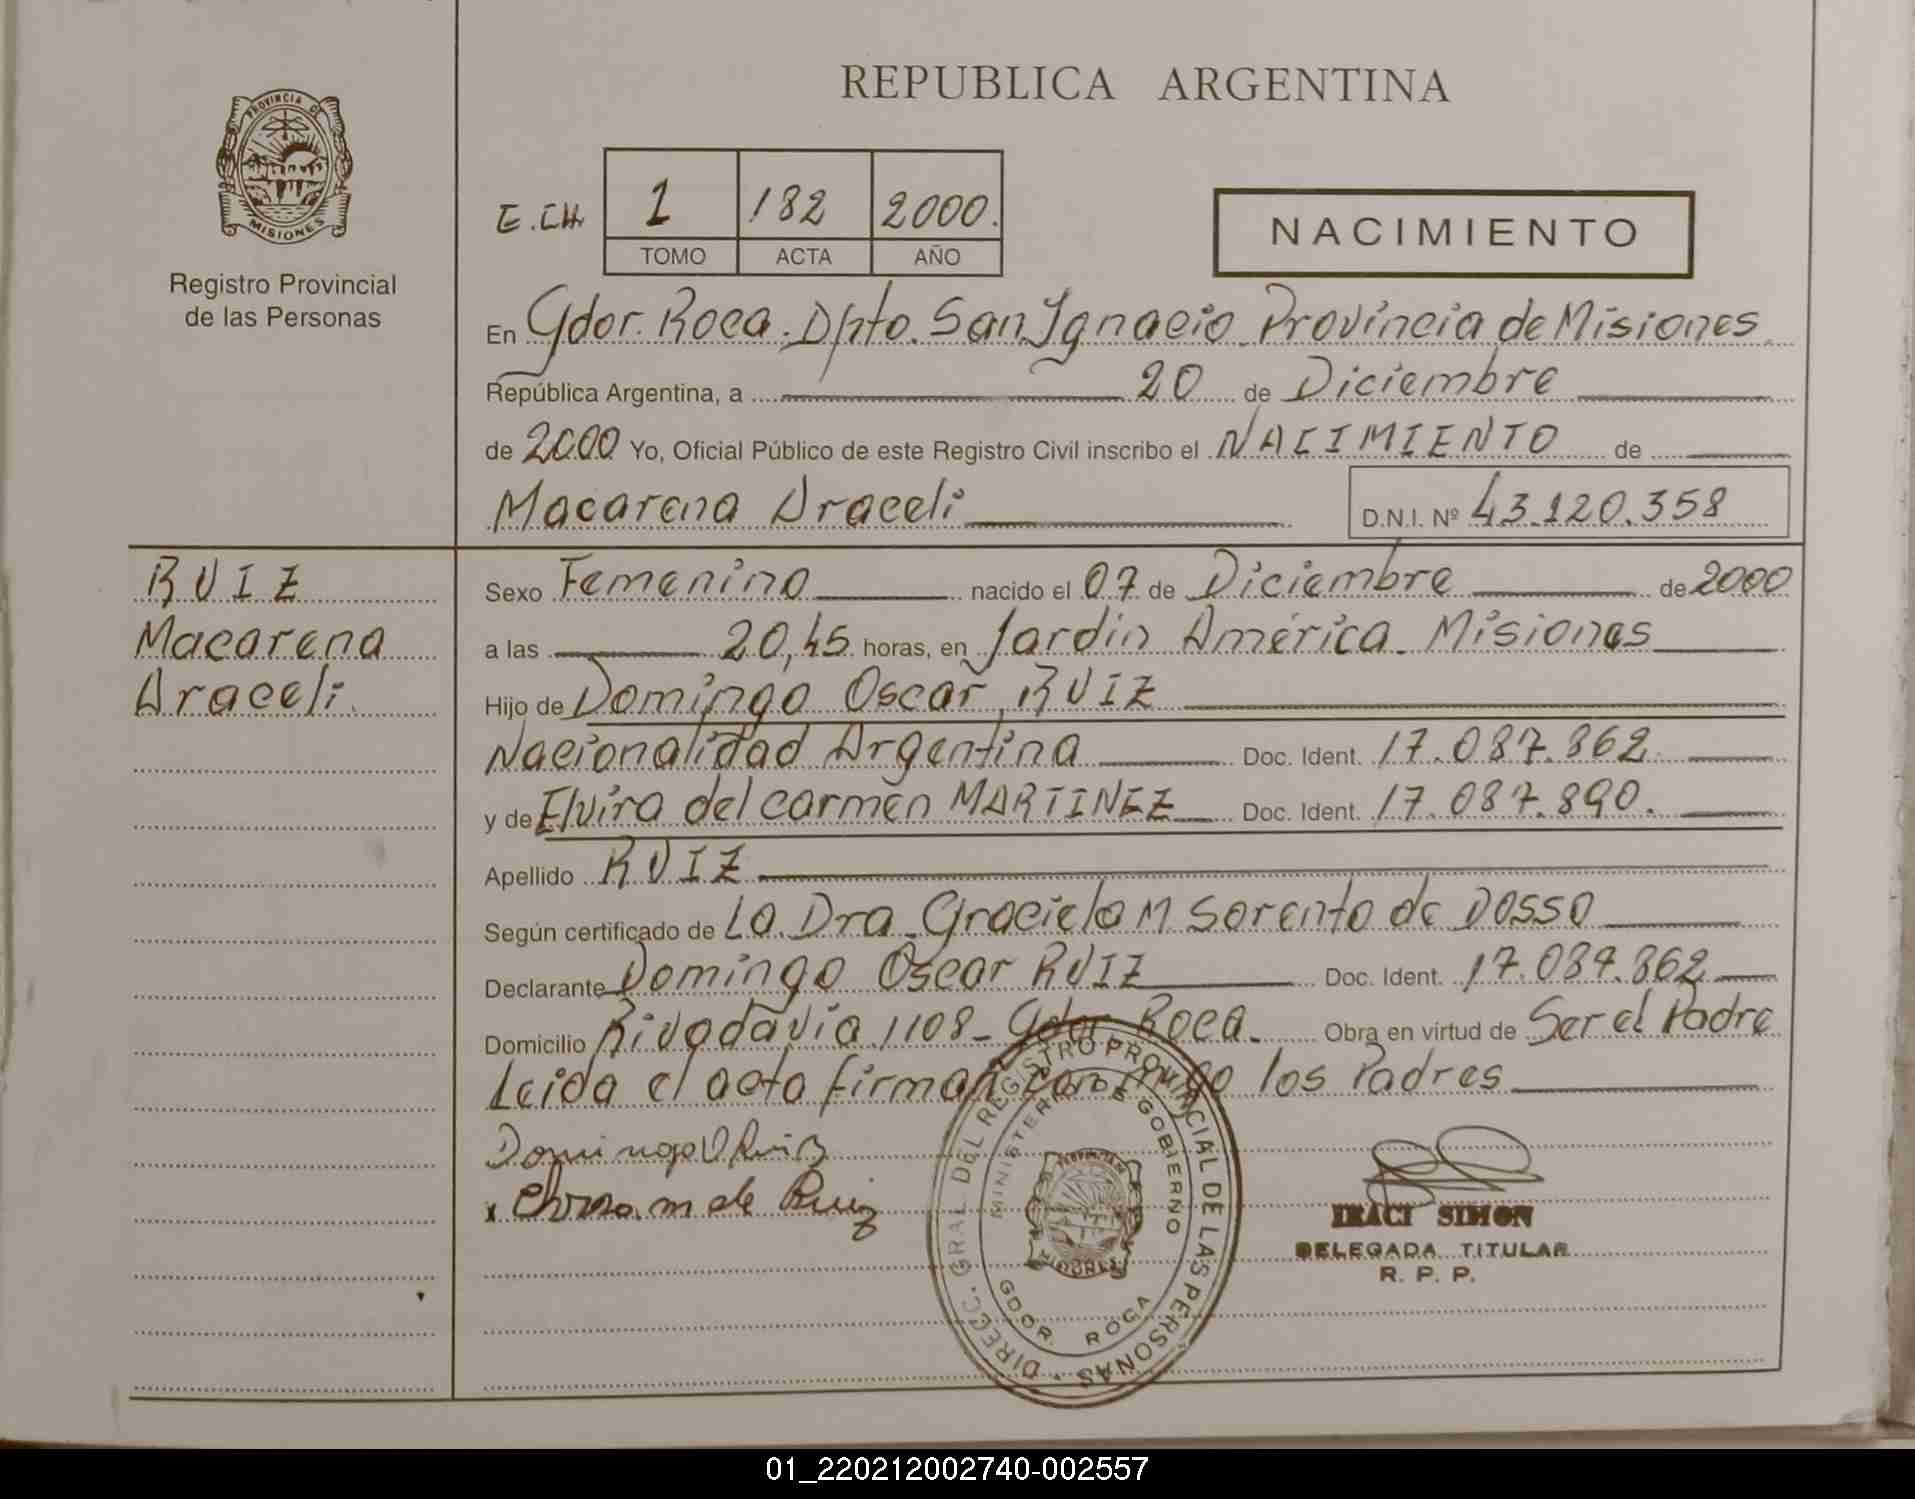 REPUBLICA ARGENTINA
PROVINCIA D
MISIONES
Registro Provincial
de las Personas
E.CH. 1 182 2000.
TOMO ACTA AÑO
NACIMIENTO
En Gdor. Roca. Dpto. San Ignacio. Provincia de Misiones
República Argentina, a 20 de Diciembre
de 2000 Yo, Oficial Público de este Registro Civil inscribo el NACIMIENTO de
Macarena Araceli D.N.I. Nº 43.120.358
RUIZ
Macarena
Araceli.
Sexo Femenino nacido el 07 de Diciembre de 2000
a las 20,45 horas, en Jardín América. Misiones
Hijo de Domingo Oscar RUIZ
Nacionalidad Argentina Doc. Ident. 17.087.862
y de Elvira del Carmen MARTINEZ Doc. Ident. 17.087.890.
Apellido RUIZ
Según certificado de La Dra. Graciela M Sorento de DOSSO
Declarante Domingo Oscar RUIZ Doc. Ident. 17.087.862
Domicilio Rivadavia 1108- Gdor. Roca. Obra en virtud de Ser el Padre
Leida el acta firman conmigo los Padres
Domingo O Ruiz
x Elvira m de Ruiz
DIRECC. GRAL. DEL REGISTRO PROVINCIAL DE LAS PERSONAS
MINISTERIO DE GOBIERNO
GDOR. ROCA
IRACI SIMON
DELEGADA TITULAR
R. P. P.
01_220212002740-002557